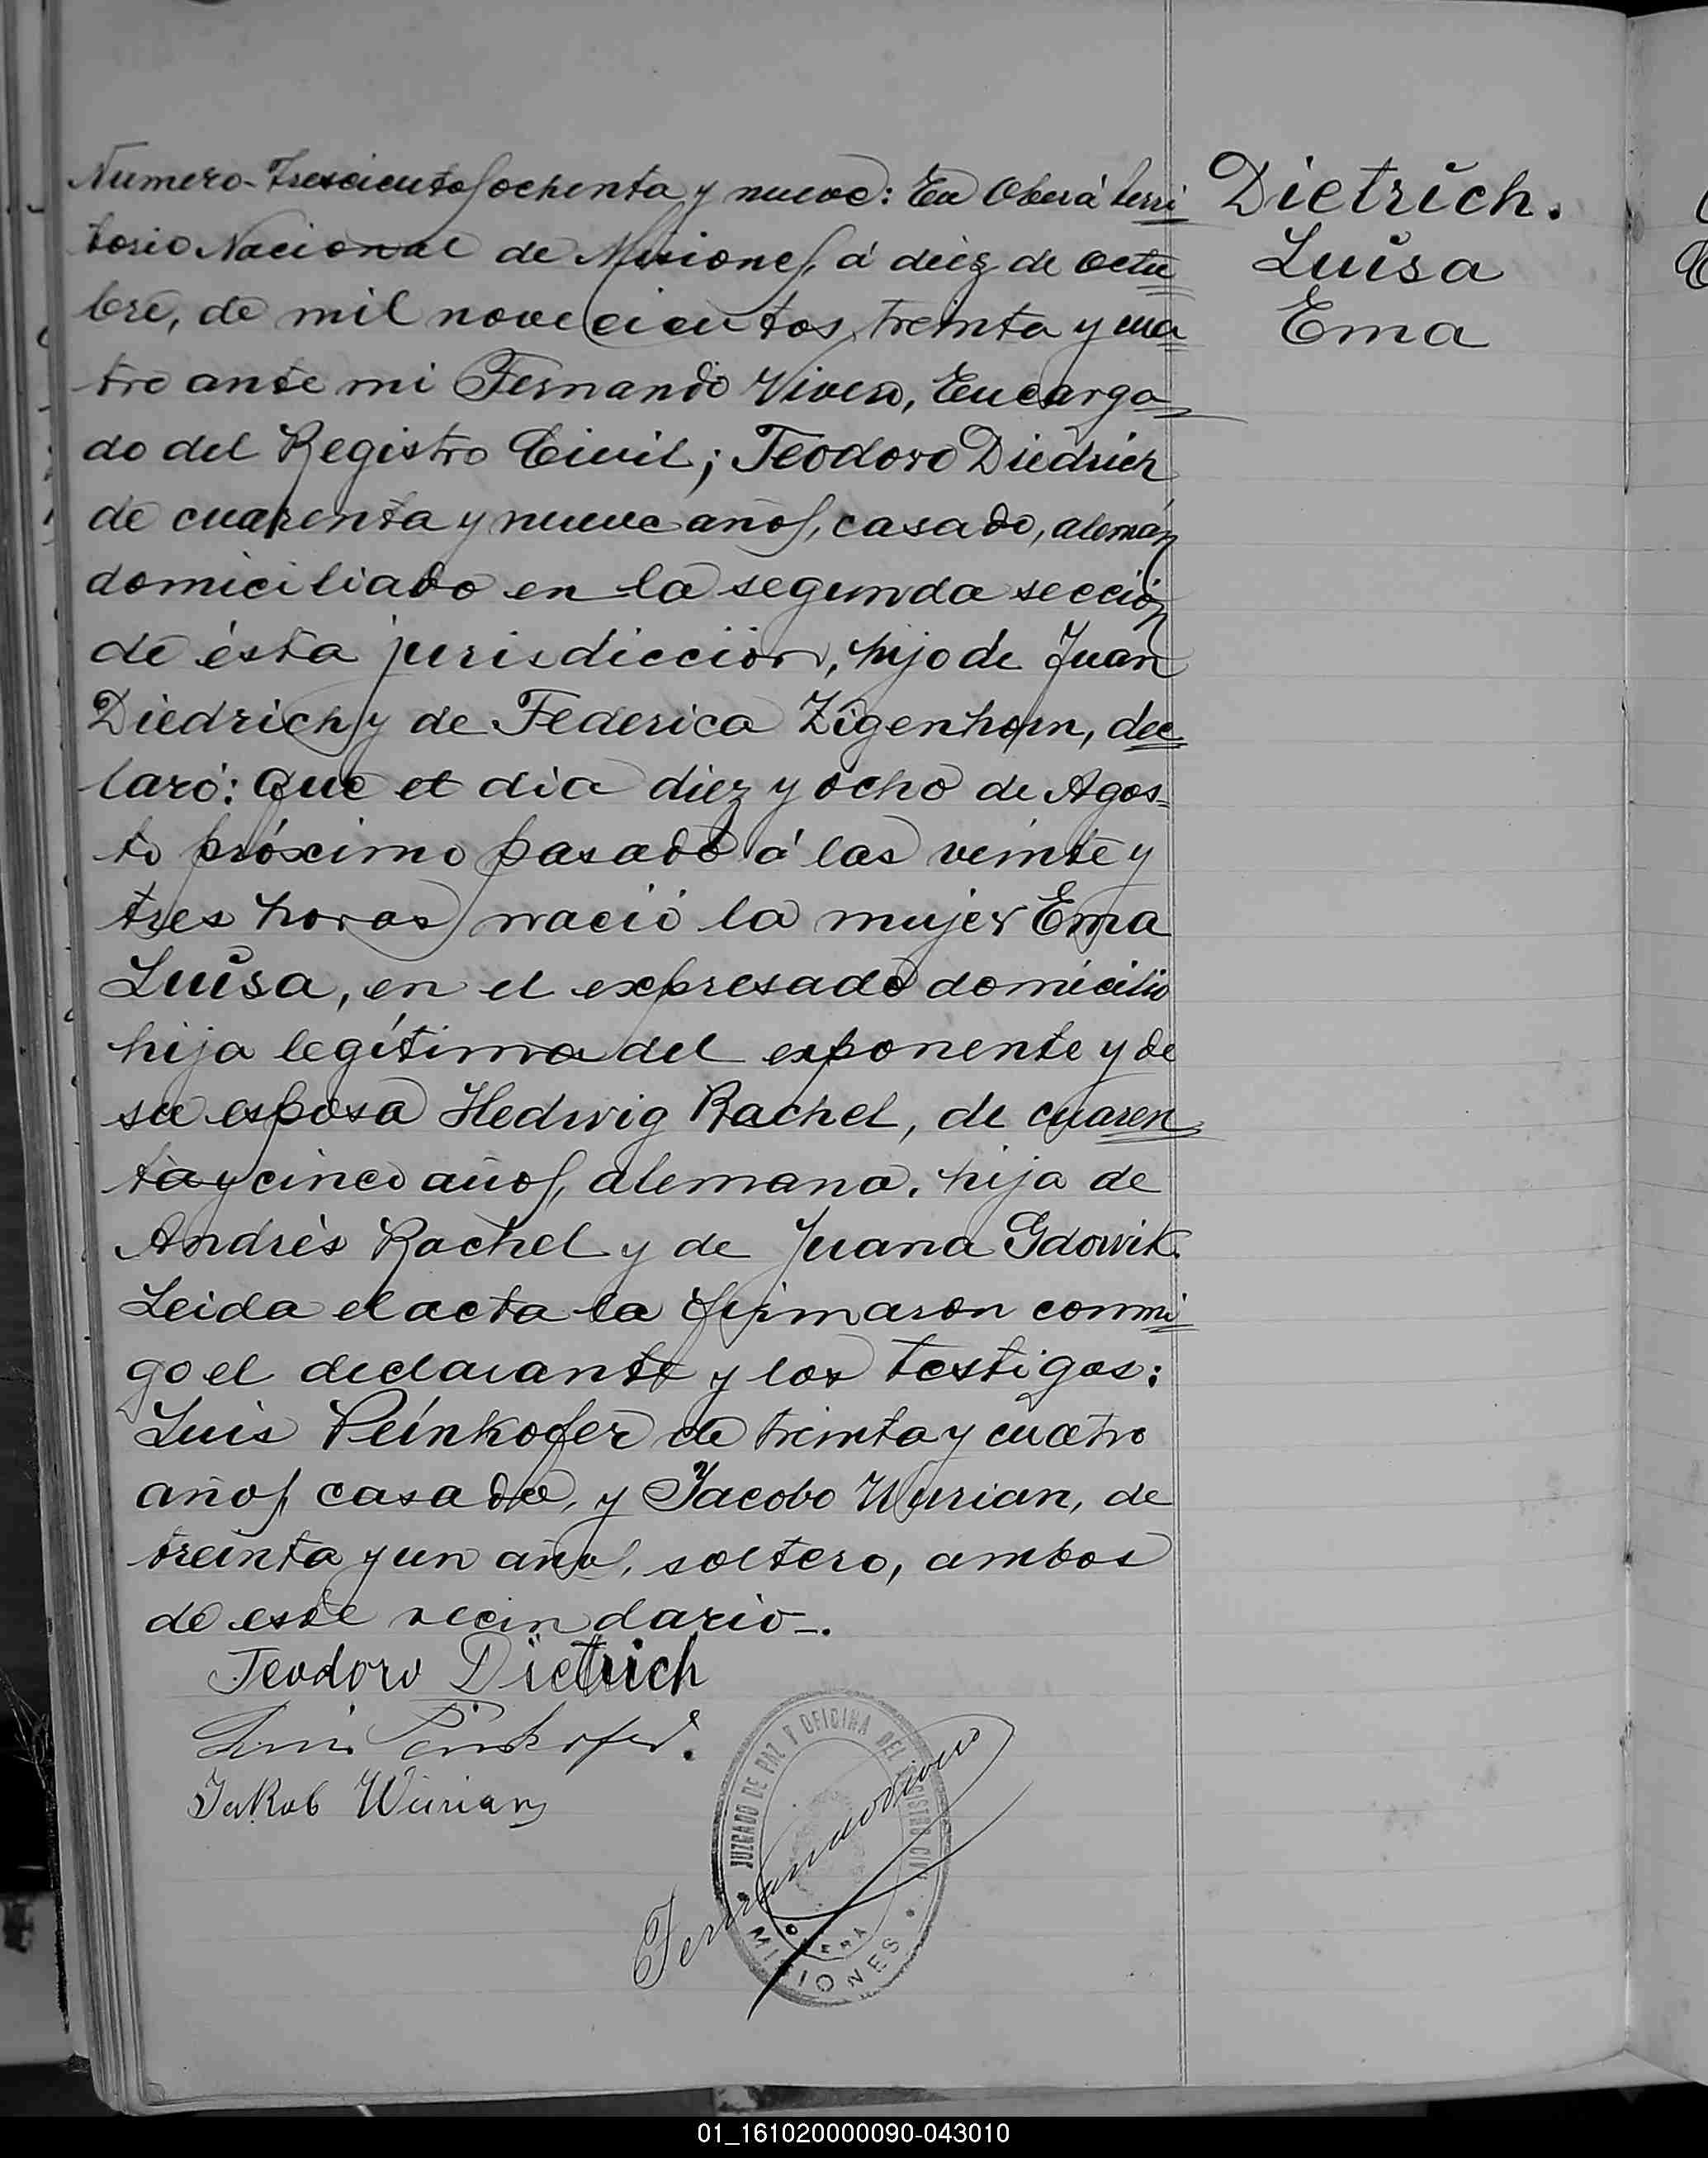 Numero Trescientos ochenta y nueve: En Oberá terri
torio Nacional de Misiones, á diez de octu
bre, de mil novecientos treinta y cua
tro ante mi Fernando Vivero, Encarga
do del Registro Civil; Teodoro Diedrich
de cuarenta y nueve años, casado, alemán
domiciliado en la segunda sección
de ésta jurisdicción, hijo de Juan
Diedrich y de Federica Zigenhorn, dec
laró: Que el dia diez y ocho de Agos-
to próximo pasado á las veinte y
tres horas nació la mujer Ema
Luisa, en el expresado domicilio
hija legítima del exponente y de
su esposa Hedwig Rachel, de cuaren
ta y cinco años, alemana, hija de
Andrés Rachel y de Juana Gdowik.
Leida el acta la firmaron conmi
go el declarante y los testigos:
Luis Peinkofer de treinta y cuatro
años casado, y Jacobo Wurian, de
treinta y un años, soltero, ambos
de este vecindario-.
Teodoro Dietrich
Luis Peinkofer.
Jakob Wurian
Fernando Vivero
JUZGADO DE PAZ Y OFICINA DEL REGISTRO CIVIL
OBERA
MISIONES
Dietrich.
Luisa
Ema
01_161020000090-043010